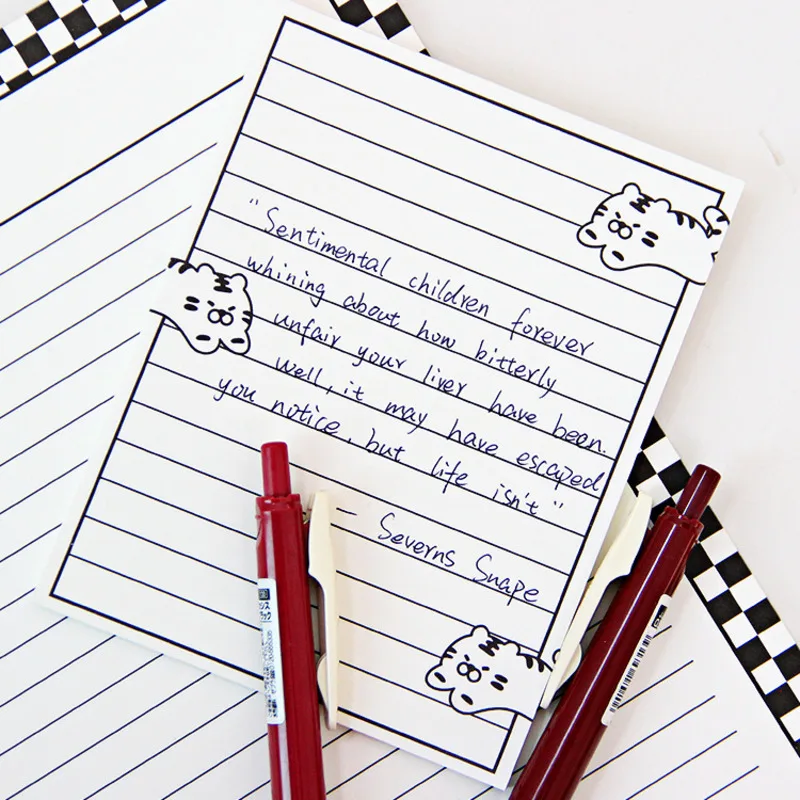 "Sentimental children forever
whining about how bitterly
unfair your liver have been.
well, it may have escaped
you notice, but life isn't"
— Severns Snape